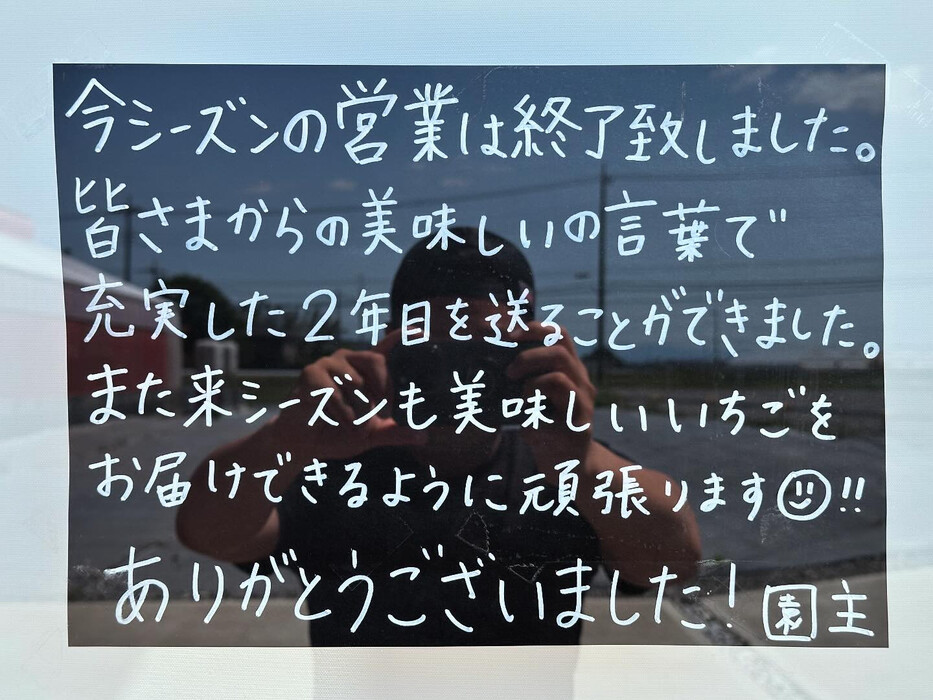 今シーズンの営業は終了致しました。
皆さまからの美味しいの言葉で
充実した2年目を送ることができました。
また来シーズンも美味しいいちごを
お届けできるように頑張ります☺!!
ありがとうございました! 園主